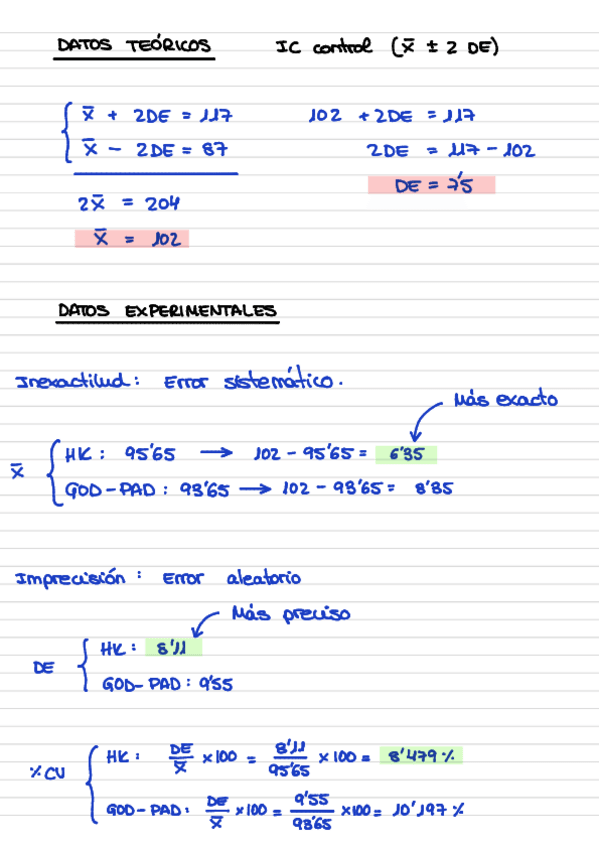 DATOS TEÓRICOS IC control (x̄ ± 2 DE)
x̄ + 2DE = 117 102 + 2DE = 117
x̄ - 2DE = 87 2DE = 117 - 102
2x̄ = 204 DE = 7'5
x̄ = 102
DATOS EXPERIMENTALES
Inexactitud: Error sistemático.
Más exacto
x̄ { HK: 95'65 → 102 - 95'65 = 6'35
GOD-PAD: 93'65 → 102 - 93'65 = 8'35
Imprecisión: Error aleatorio
Más preciso
DE { HK: 8'11
GOD-PAD: 9'55
% CV { HK: DE/x̄ x100 = 8'11/95'65 x 100 = 8'479 %
GOD-PAD: DE/x̄ x100 = 9'55/93'65 x100 = 10'197 %